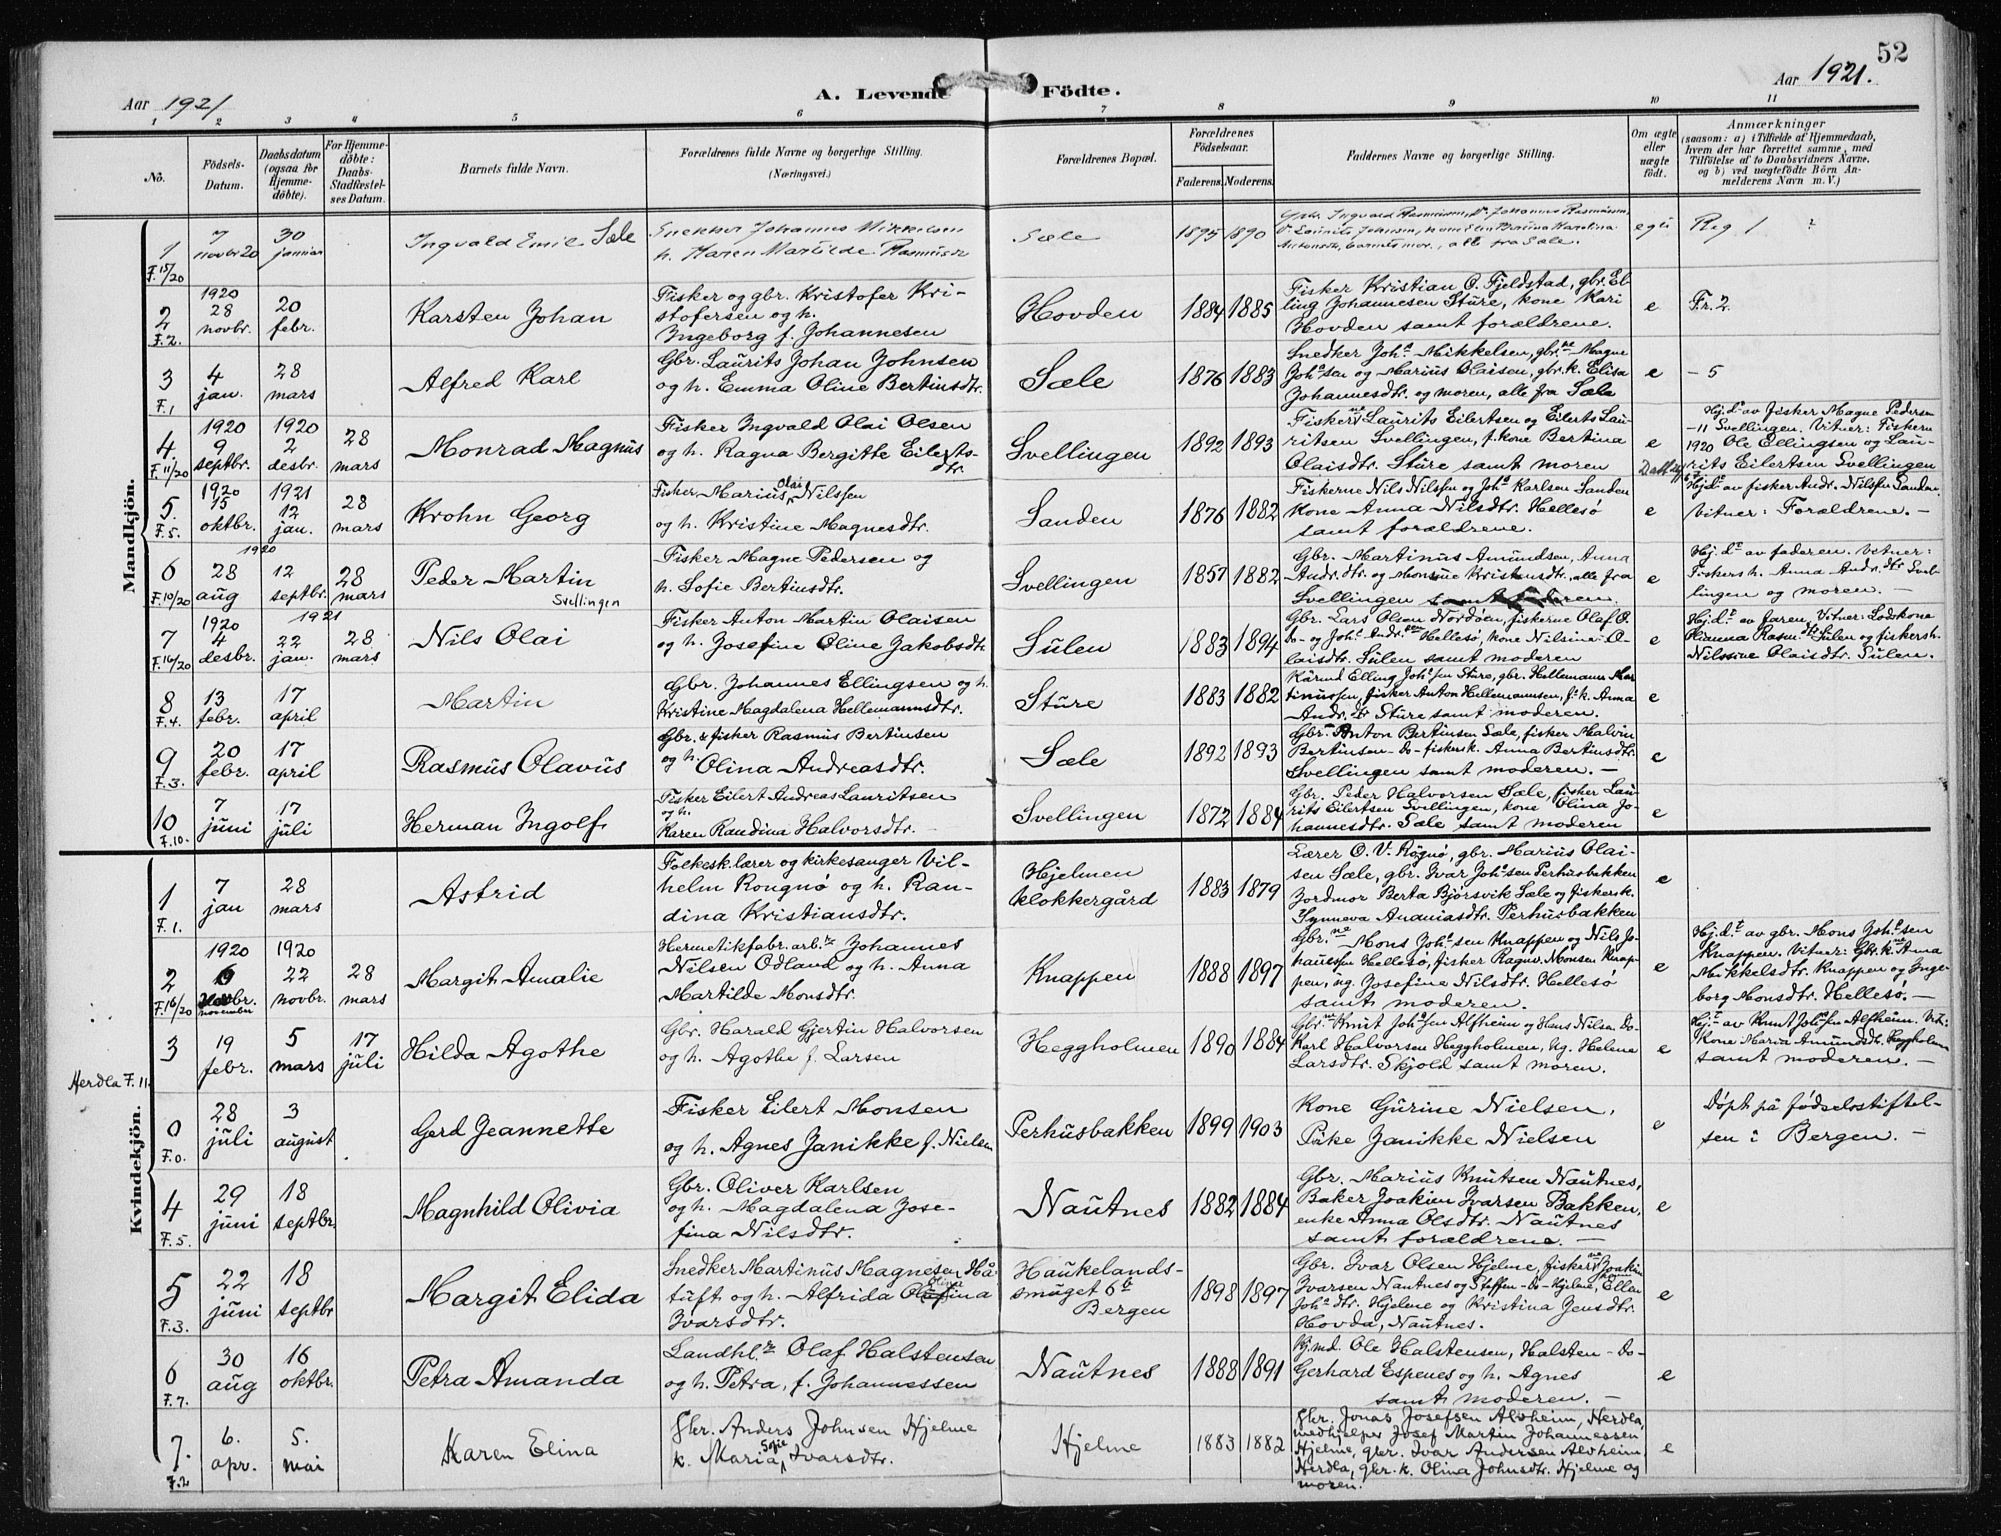 52
Aar 1921
A. Levende Födte.
Aar 1921.
1 2 3 4 5 6 7 8 9 10 11
No.
Födsels-Datum.
Daabsdatum (ogsaa for Hjemme-døbte).
For Hjemme-døbte: Daabs-Stadfæstel-ses Datum.
Barnets fulde Navn.
Forældrenes fulde Navne og borgerlige Stilling. (Næringsvei.)
Forældrenes Bopæl.
Forældrenes Födselsaar.
Faderens. Moderens.
Faddernes Navne og borgerlige Stilling.
Om ægte eller uægte født.
Anmærkninger
(saasom: a) i Tilfælde af Hjemmedaab, hvem der har forrettet samme, med Tilföielse af to Daabsvidners Navne, og b) ved uægtefödte Börn An-melderens Navn m. V.)
Mandkjön.
1 F.15/20
7 novbr 20
30 januar
Ingvald Emil Sæle
Snekker Johannes Mikkelsen
h. Karen Martilde Rasmusdr
Sæle
1895 1890
Antonsen, barnets mor, alle fra Sæle.
egte
Reg 1
2 F.2.
1920 28 novbr.
20 febr.
Karsten Johan
Fisker og gbr. Kristofer Kri-
stofersen og h.
Ingeborg f. Johannesen
Hovden
1884 1885
Fisker Kristian O. Fjeldstad, gbr. El-
ling Johannesen Stüre, kone Kari
Hovden samt forældrene.
e
Fr. 2.
3 F.1
4 jan.
28 mars
Alfred Karl
Gbr. Laurits Johan Johnsen
og h. Emma Oline Bertinsdtr.
Sæle
1876 1883
Snedker Joh.s Mikkelsen, gbr.ne Magne
Joh.sen og Marius Olaisen, gbr.k. Elisa
Johannesdtr. og moren, alle fra Sæle
e
- 5
4. F.11/20
1920 9 septbr.
1920 2 desbr.
28 mars
Monrad Magnus
Fisker Ingvald Olai Olsen
og h. Ragna Bergitte Eilerts-
dtr.
Svellingen
1892 1893
Fiskerne Laurits Eilertsen og Eilerts Lau-
ritsen Svellingen, f.kone Bertina
Olaisdtr. Stüre samt moren
e
Hj.dt av fisker Magne Pedersen
-11 Svellingen. Vitner: Fiskern
1920 Ole Ellingsen og Lau-
rits Eilertsen Svellingen
5. F.5.
1920 15 oktbr.
1921 12 jan.
28 mars
Krohn Georg
Fisker Marius Olai Nilssen
og h. Kristine Magnesdtr.
Sanden
1876 1882
Fiskerne Nils Nilssen og Joh.s Karlsen Sanden
kone Anna Nilsdtr. Hellesö
samt forældrene.
e
Hj.dt av fisker Andr. Nilssen Sanden.
Vitner: Forældrene. -
6 F.10/20
1920
28 aug
12 septbr.
28 mars
Peder Martin
Svellingen
Fisker Magne Pedersen og
h. Sofie Bertinsdtr.
Svellingen
1857 1882
Gbr. Martinus Amundsen, Anna
Andr.dtr. og Monsine Kristensdtr., alle fra
Svellingen
e
Hj.dt av faderen. Vitner:
Fiskersh. Anna Andr.dtr Svel-
lingen og moren. -
7 F.16/20
1920 4 desbr.
1921 22 jan.
28 mars
Nils Olai
Fisker Anton Martin Olaisen
og h. Josefine Oline Jakobsdtr.
Sülen
1883 1894
Gbr. Lars Olsen Nordöen, fiskerne Olaf O.
do- og Joh.s Andr.sen Hellesö, kone Nilsine O-
laisdtr. Sülen samt moderen
e
Hj.dt av faren. Vitner: Lodskone
Olianna Rasm.dtr Sülen og fiskersh.
Nilssine Olaisdtr. Sülen.
8 F.4.
13 febr.
17 april
Martin
Gbr. Johannes Ellingsen og h.
Kristine Magdalena Hellemannsdtr.
Stüre
1883 1882
Kårmd Elling Joh.sen Stüre, gbr. Hellemann Mar-
tinussen, fisker Anton Hellemannsen, f.k. Anna
Andr.dr Stüre samt moderen.
e
9 F.3.
20 febr.
17 april
Rasmüs Olavüs
Gbr. & fisker Rasmus Bertinsen
og h. Olina Andreasdtr.
Sæle
1892 1893
Gbr. Anton Bertinsen Sæle, fisker Malvin
Bertinsen -do- fiskersk. Anna Bertinsdtr.
Svellingen samt moderen. -
e
10 F.10.
7 juni
17 juli
Herman Ingolf
Fisker Eilert Andreas Lauritsen
og h.
Karen Randina Halvorsdtr.
Svellingen
1872 1884
Gbr. Peder Halvorsen Sæle, fisker Lau-
rits Eilertsen Svellingen, kone Olina Jo-
hannesdtr. Sæle samt moderen
e
Kvindekjön.
1 F.1.
7 jan
28 mars
Astrid
Folkesk.lærer og kirkesanger Vil-
helm Rongnö og h. Ran-
dina Kristiansdtr.
Hjelmen
klokkergård
1883 1879
Lærer O. V. Rögnö, gbr. Marius Olai-
sen Sæle, gbr. Ivar Joh.sen Perhüsbakken
Jordmor Berta Bjørsvik Sæle og fiskersk.
Synneva Ananiasdtr. Perhusbakken
e
2 F.16/20
1920 6 novbr. november
1920 22 novbr.
28 mars
Margit Amalie
Hermetikfabr.arb.r Johannes
Nilsen Odland og h. Anna
Martilde Monsdtr.
Knappen
1888 1897
Gbr.ne Mons Joh.sen Knappen og Nils Jo-
hanessen Hellesö, fisker Ragnv. Monsen Knap-
pen, ug. Josefine Nilsdtr. Hellesö
samt moderen.
e
Hj.dt av gbr. Mons Joh.sen
Knappen. Vitner: Gbr.k. Anna
Mikkelsdtr. Knappen og Inge-
borg Monsdtr. Hellesö. -
Herdla F. 11.
3
19 febr.
5 mars
17 juli
Hilda Agothe
Gbr. Harald Gjertin Halvorsen
og h. Agothe f. Larsen
Heggholmen
1890 1884
Gbr.ne Knut Joh.sen Alfheim og Hans Nilsen Do.
Karl Halvorsen Heggholmen, ug. Helene
Larsdtr. Skjold samt moren.
e
Hj.t av Knut Joh.sen Alfheim. Vit:
Kone Maria Amundsdtr. Heggholmen
samt moderen. -
0 F.0.
28 juli
3 august
Gerd Jeannette
Fisker Eilert Monsen
og h. Agnes Janikke f. Nielsen
Perhusbakken
1899 1903
Kone Gürine Nielsen,
Pike Janikke Nielsen
e
Döpt på födselsstiftel-
sen i Bergen. -
4 F.5.
29 juni
18 septbr.
Magnhild Olivia
Gbr. Oliver Karlsen
og h. Magdalena Jose-
fina Nilsdtr.
Naütnes
1882 1884
Gbr. Marius Knutsen Naütnes,
Baker Joakim Ivarsen Bakken,
enke Anna Olsdtr. Naütnes
samt forældrene. -
e
5 F.3.
22 juni
18 septbr
Margit Elida
Snedker Martinüs Magnesen Hå-
tuft og h. Alfrida Olina
Ivarsdtr.
Haükelands-
smüget 6b
Bergen
1898 1897
Gbr. Ivar Olsen Hjelme, fiskerne Joakim
Ivarsen Nautnes og Steffen -do- Hjelme, Ellen
Joh.s dtr. Hjelme og Kristina Jensdtr.
Hovda, Nautnes.
e
6 F.7.
30 aug
16 oktbr.
Petra Amanda
Landhl.r Olaf Halstensen
og h. Petra, f. Johannessen
Naütnes
1888 1891
Kj.md. Ole Halstensen, Halsten -Do-
Gerhard Espenes og h. Agnes
samt moderen. -
e
7. F.2
6. apr.
5. mai
Karen Elina
Gbr. Anders Johnsen Hjelme
k. Maria Sofie Ivarsdtr.
Hjelme
1883 1882
Gbr. Jonas Josefsen Alvheim, Herdla,
medhjelper Josef Martin Johannessen
Hjelme, gbr. Ivar Andersen Alvheim
Herdla, gbr.k. Olina Johnsdtr. Hjelme og
moren.
e